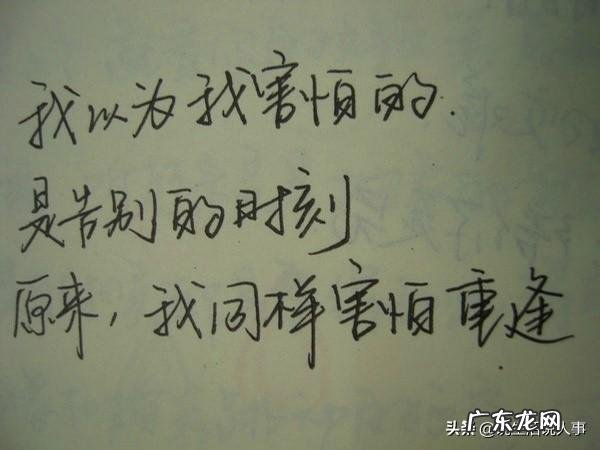 我以为我害怕的.
是告别的时刻
原来，我同样害怕重逢
广东龙网
头条